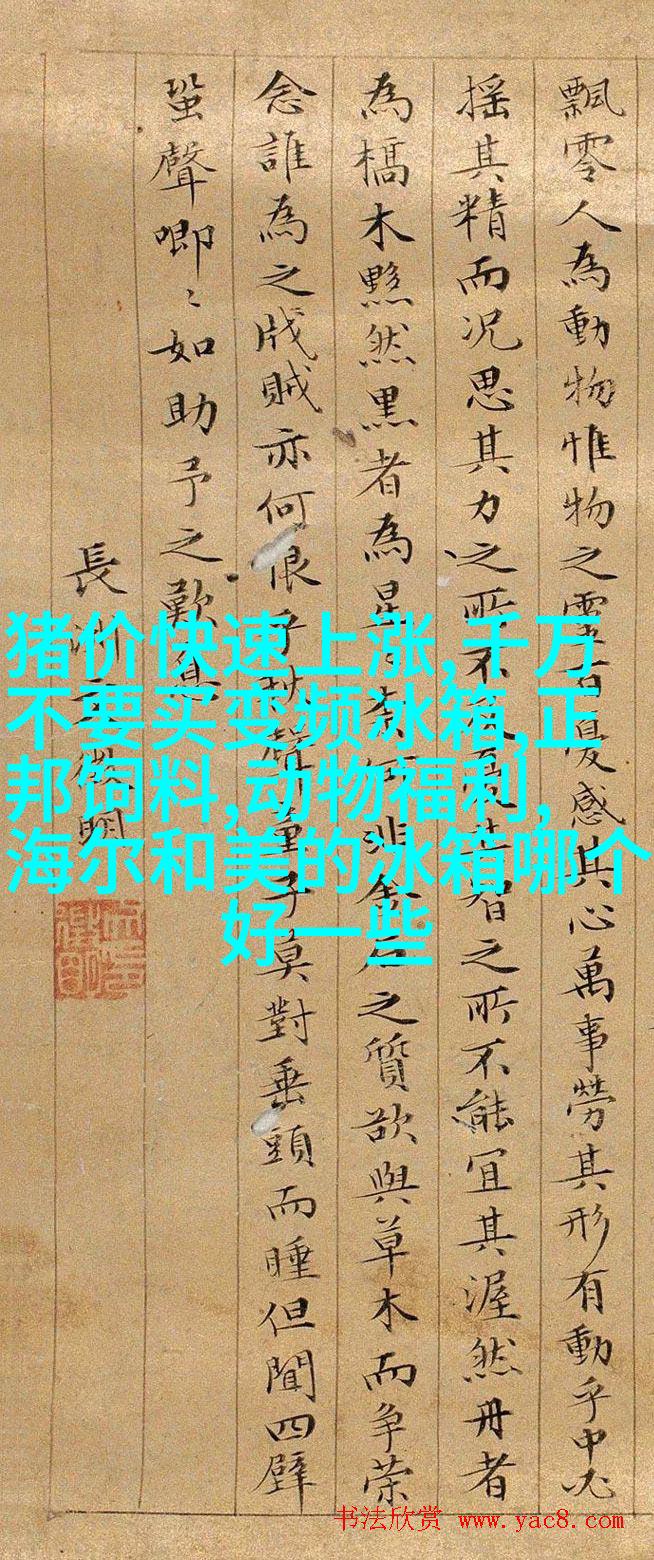 飄零人為動物惟物之靈百憂感其心萬事勞其形有動乎中必
搖其精而況思其力之所不及憂其智之所不能宜其渥然丹者
為槁木黟然黑者為星〻奈何非金石之質欲與草木而爭榮
念誰為之戕賊亦何恨乎秋聲童子莫對垂頭而睡但聞四壁
蛩聲唧〻如助予之歎息
長洲文徵明
猪价快速上涨,千万
不要买变频冰箱,正
邦饲料,动物福利,
海尔和美的冰箱哪个
好一些
书法欣赏 www.yac8.com